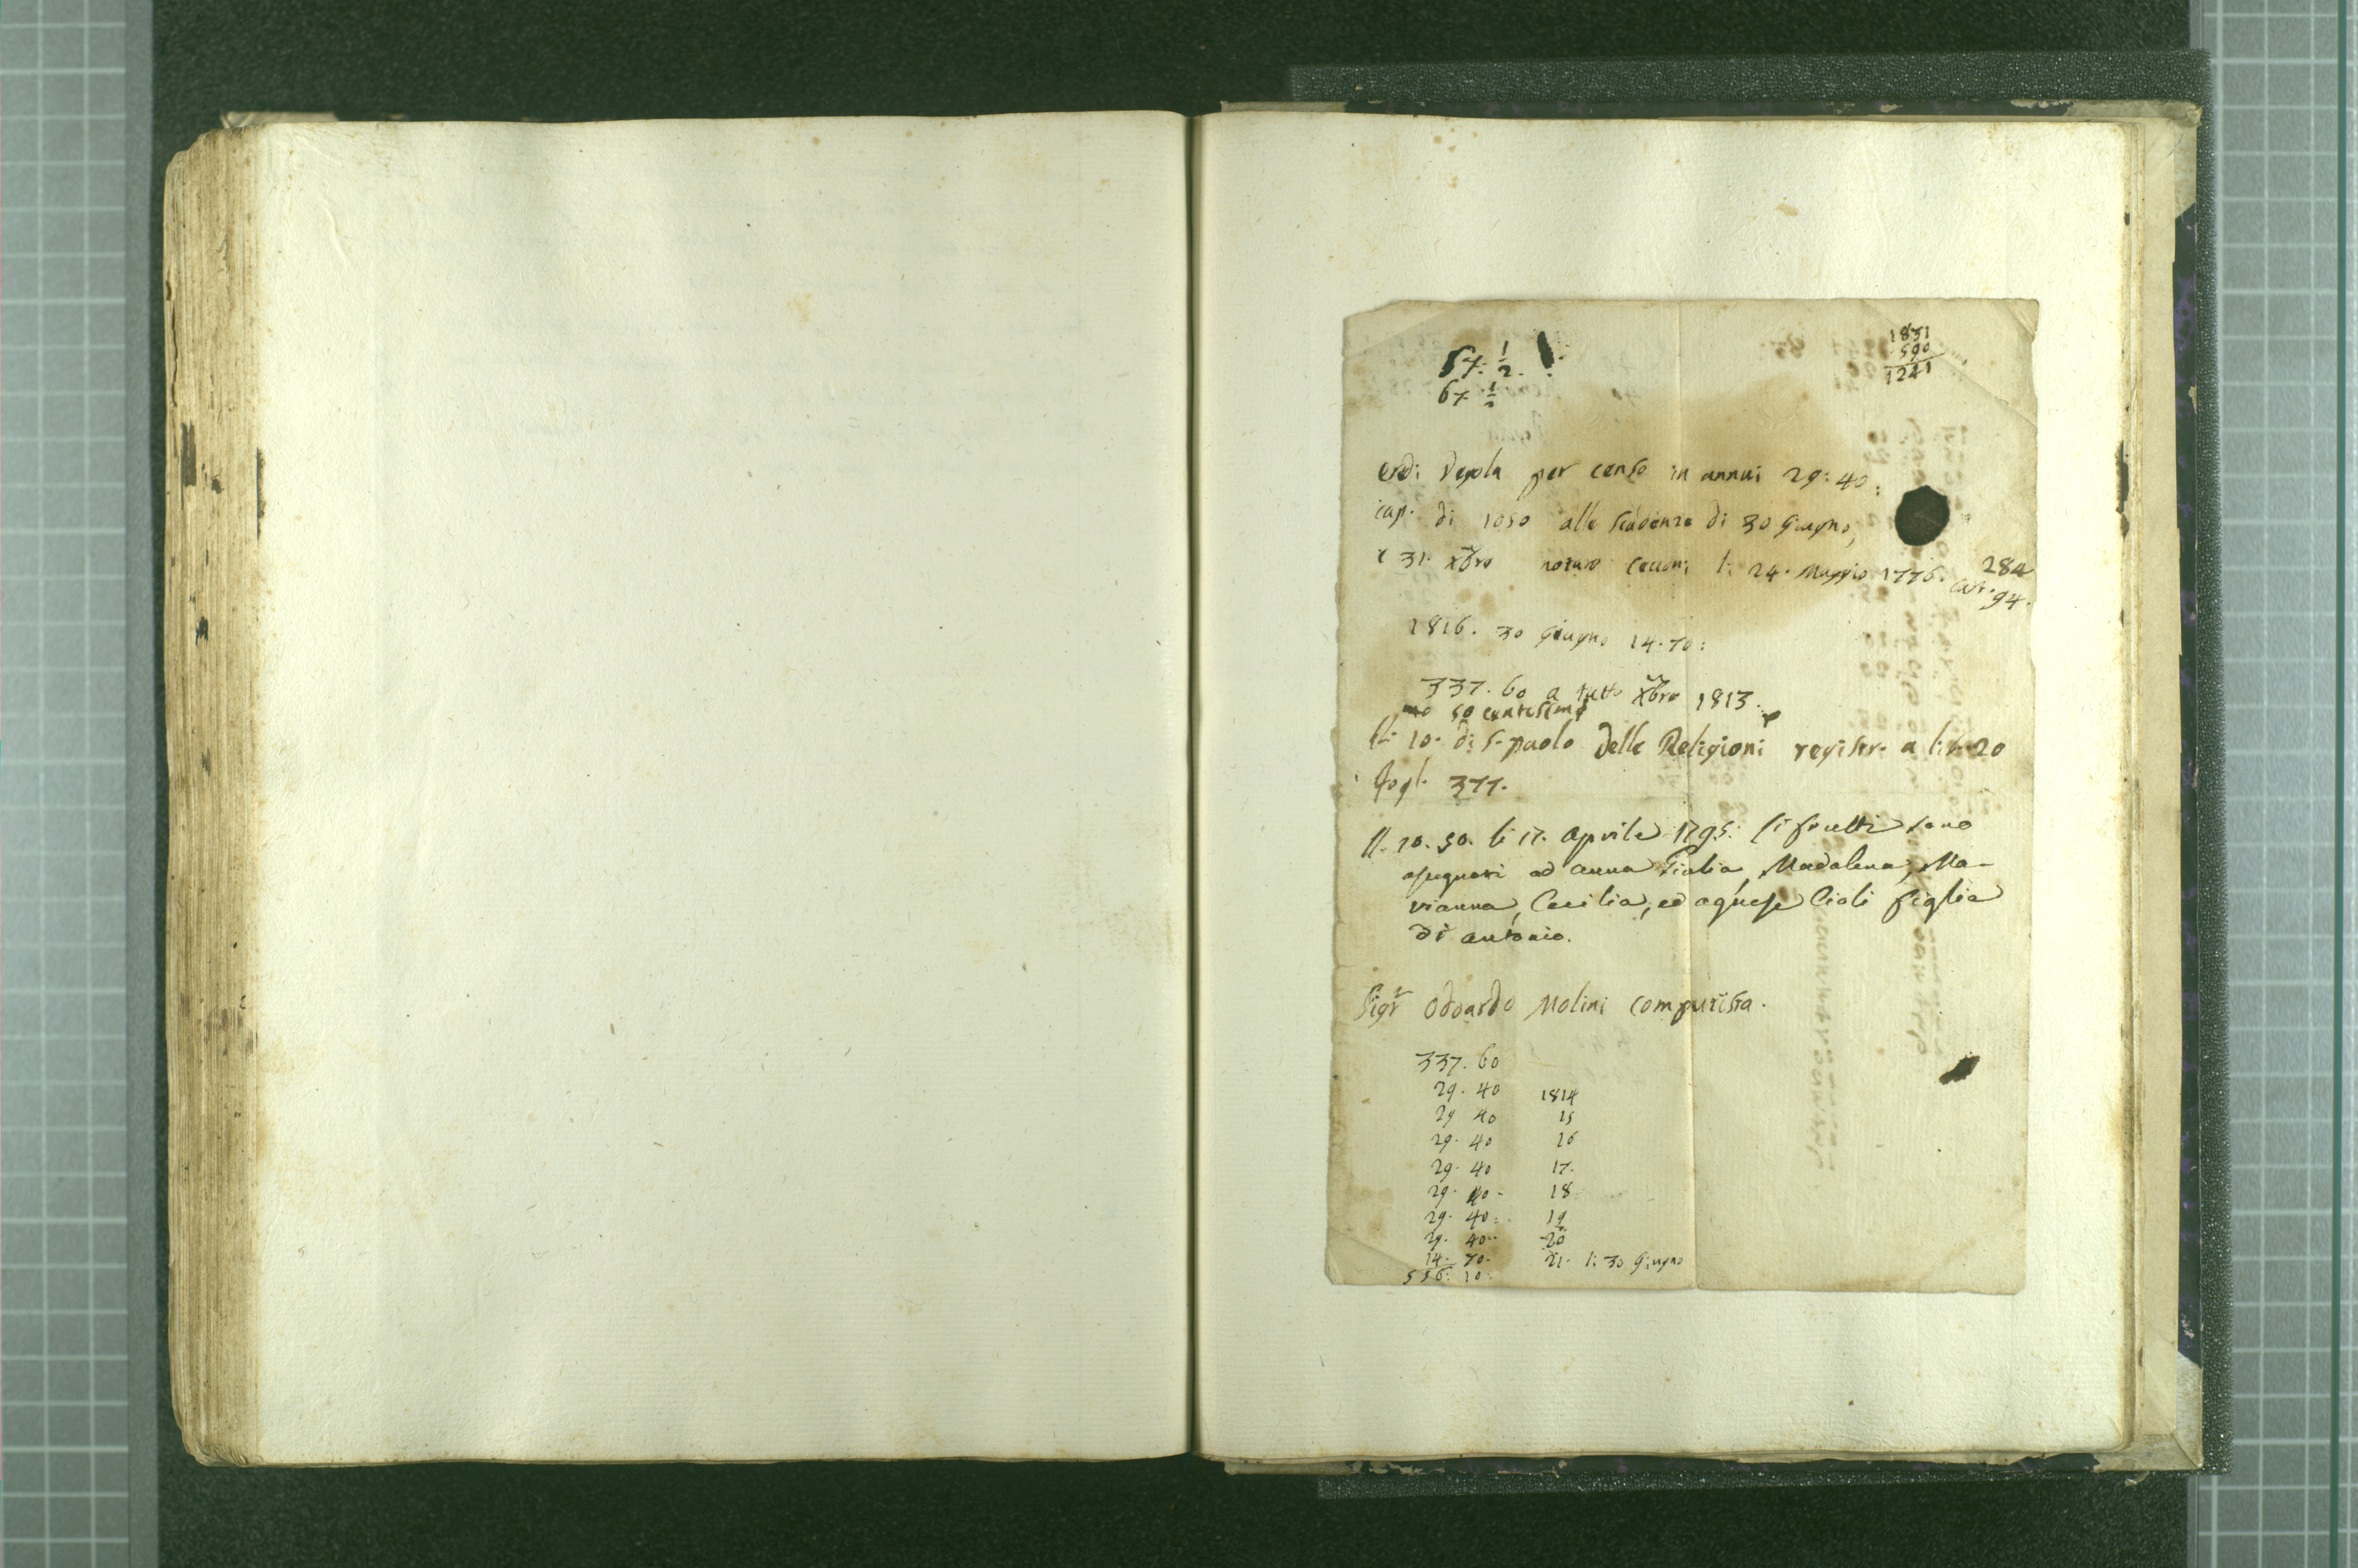 57. 1/2.
67 1/2
1831
590
1241
Eredi Degola per censo in annui 29:40:
cap. di 1050 alle scadenze di 30 Giugno,
e 31. Xbre notaro Cecconi li 24. Maggio 1776.
284
cart. 94.
1816. 30 Giugno 14.70:
337. 60 a tutto Xbre 1813.
50 centesimi
10. di S. paolo delle Religioni registr. a lib. 20
fogl. 377.
10. 50. li 17. Aprile 1795: li frutti sono
assegnati ad Anna Giulia, Madalena, Ma-
rianna, Cecilia, ed Agnese Cioli figlie
di Antonio.
Sigr Odoardo Molini computista.
337. 60
29. 40 1814
29 40 15
29. 40 16
29. 40 17.
29. 40 - 18
29. 40: 19
29. 40.. 20
14. 70. 21. li 30 Giugno
556: 10: